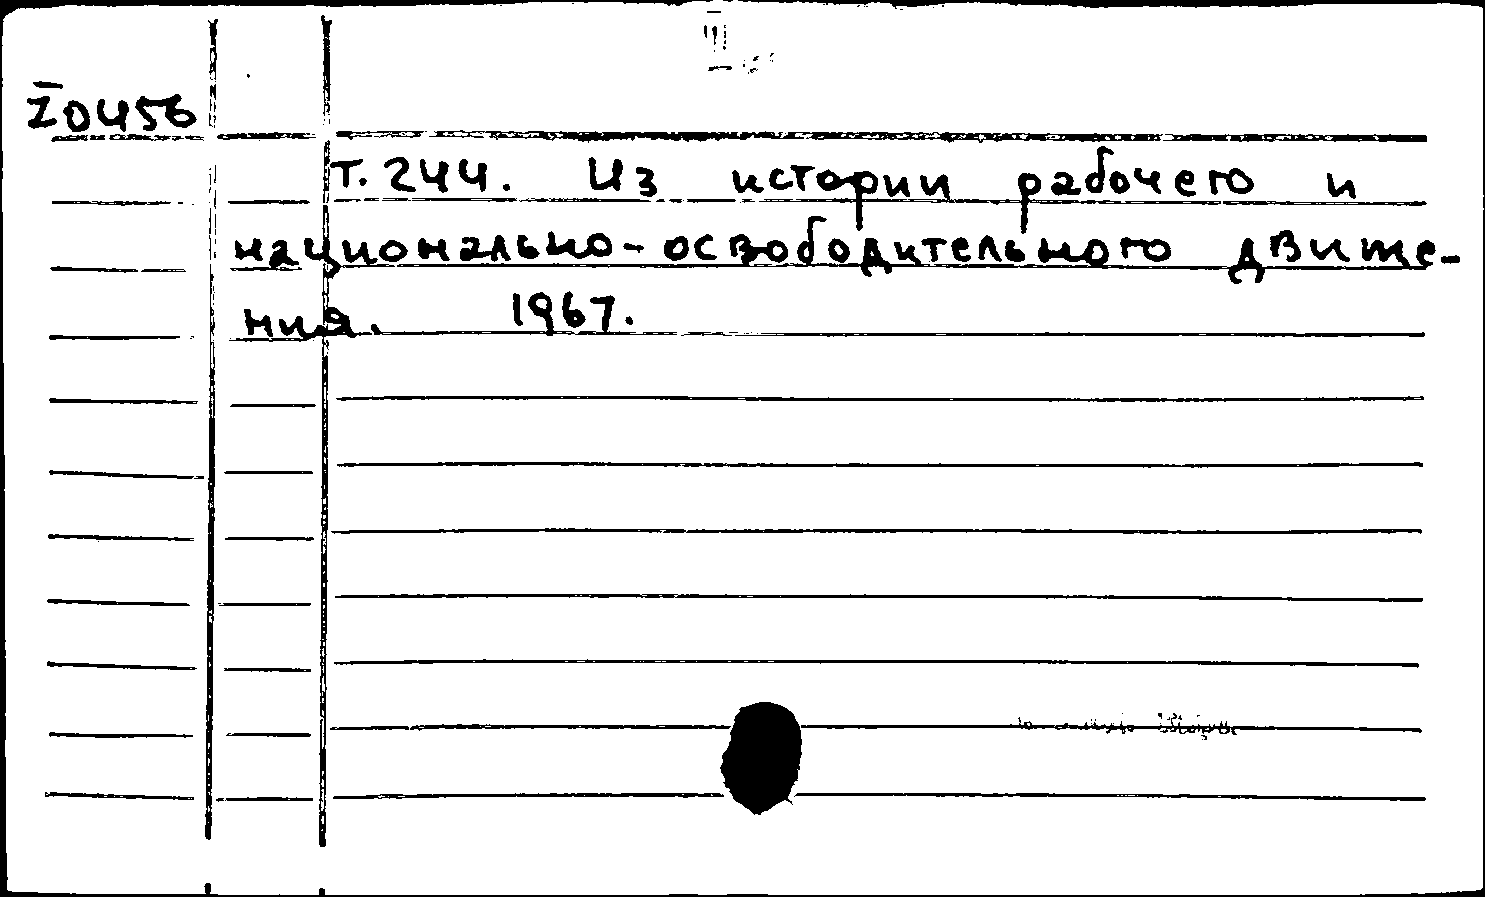 III
I0456
Т. 244. Из истории рабочего и
национально-освободительного движе-
ния. 1967.